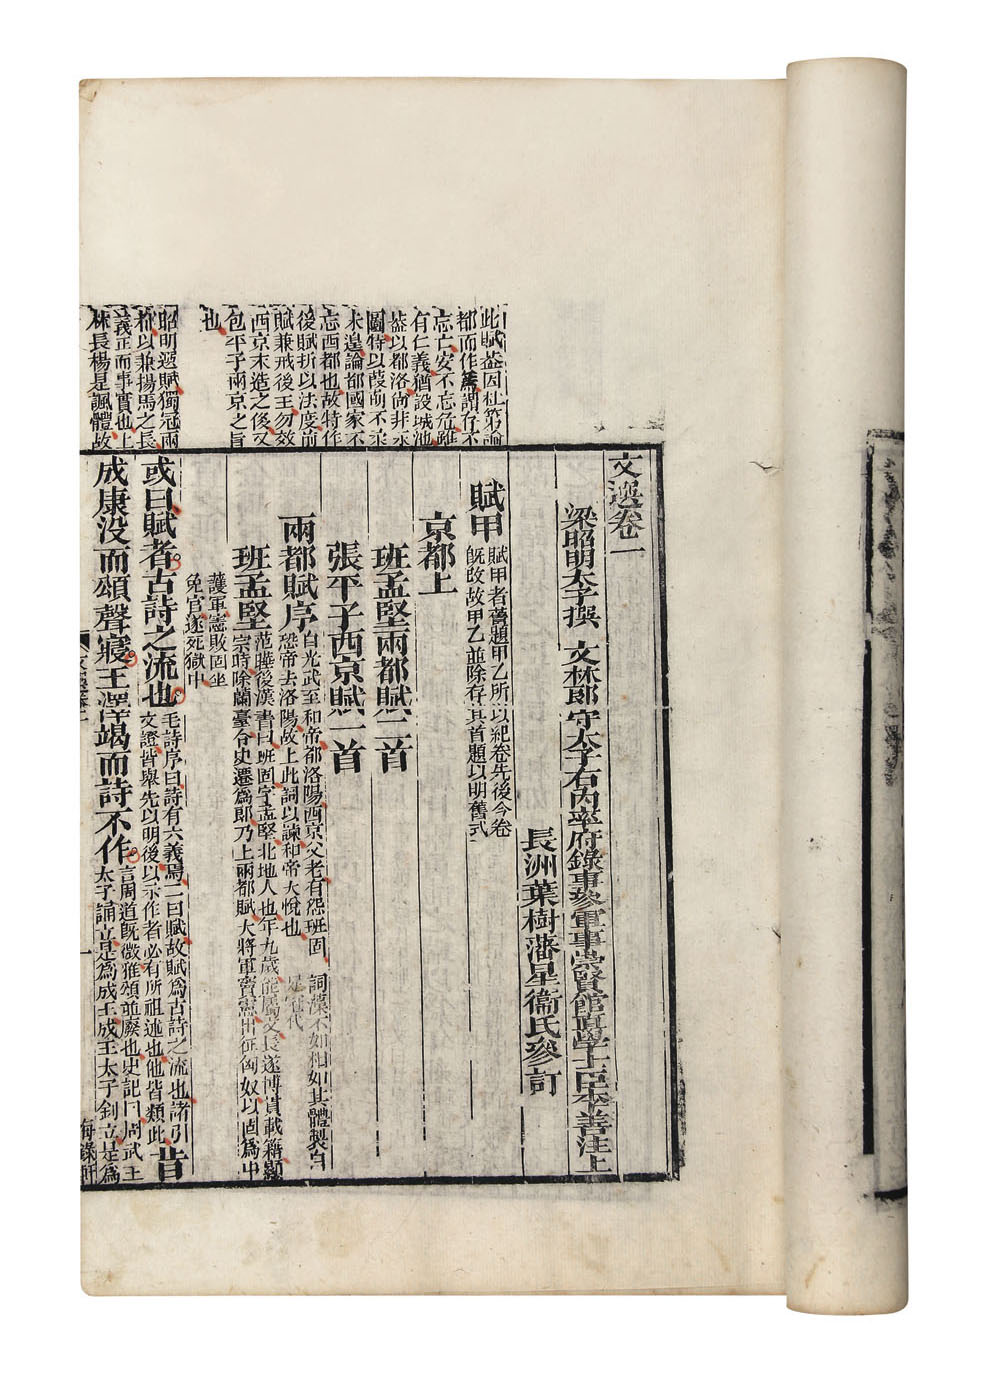 文選卷一
梁昭明太子撰　文林郎守太子右內率府錄事參軍事崇賢館直學士臣李善注上
長洲葉樹藩星衞氏參訂
賦甲
賦甲者舊題甲乙所以紀卷先後今卷
旣改故甲乙並除存其首題以明舊式
京都上
班孟堅兩都賦二首
張平子西京賦一首
兩都賦序
自光武至和帝都洛陽西京父老有怨班固
恐帝去洛陽故上此詞以諫和帝大悅也
詞藻不如相如其體製自
是冠代
班孟堅
范曄後漢書曰班固字孟堅北地人也年九歲能屬文長遂博貫載籍顯
宗時除蘭臺令史遷爲郎乃上兩都賦大將軍竇憲出征匈奴以固爲中
護軍憲敗固坐
免官遂死獄中
或曰賦者古詩之流也
毛詩序曰詩有六義焉二曰賦故賦爲古詩之流也諸引
文證皆舉先以明後以示作者必有所祖述也他皆類此
昔
成康没而頌聲寢王澤竭而詩不作
言周道旣微雅頌並廢也史記曰周武王
太子誦立是爲成王成王太子釗立是爲
此賦葢因杜篤論
都而作
忘亡安不忘危雖
有仁義猶設城池
葢以都洛尚非永
圖特以葭萌不柔
未遑論都國家不
忘西都也故特作
後賦折以法度前
賦兼戒後王勿效
西京末造之侈又
包平子兩京之旨
也
昭明選賦獨冠兩
都以兼揚馬之長
義正而事實也上
林長楊是諷體故
海錄軒
一